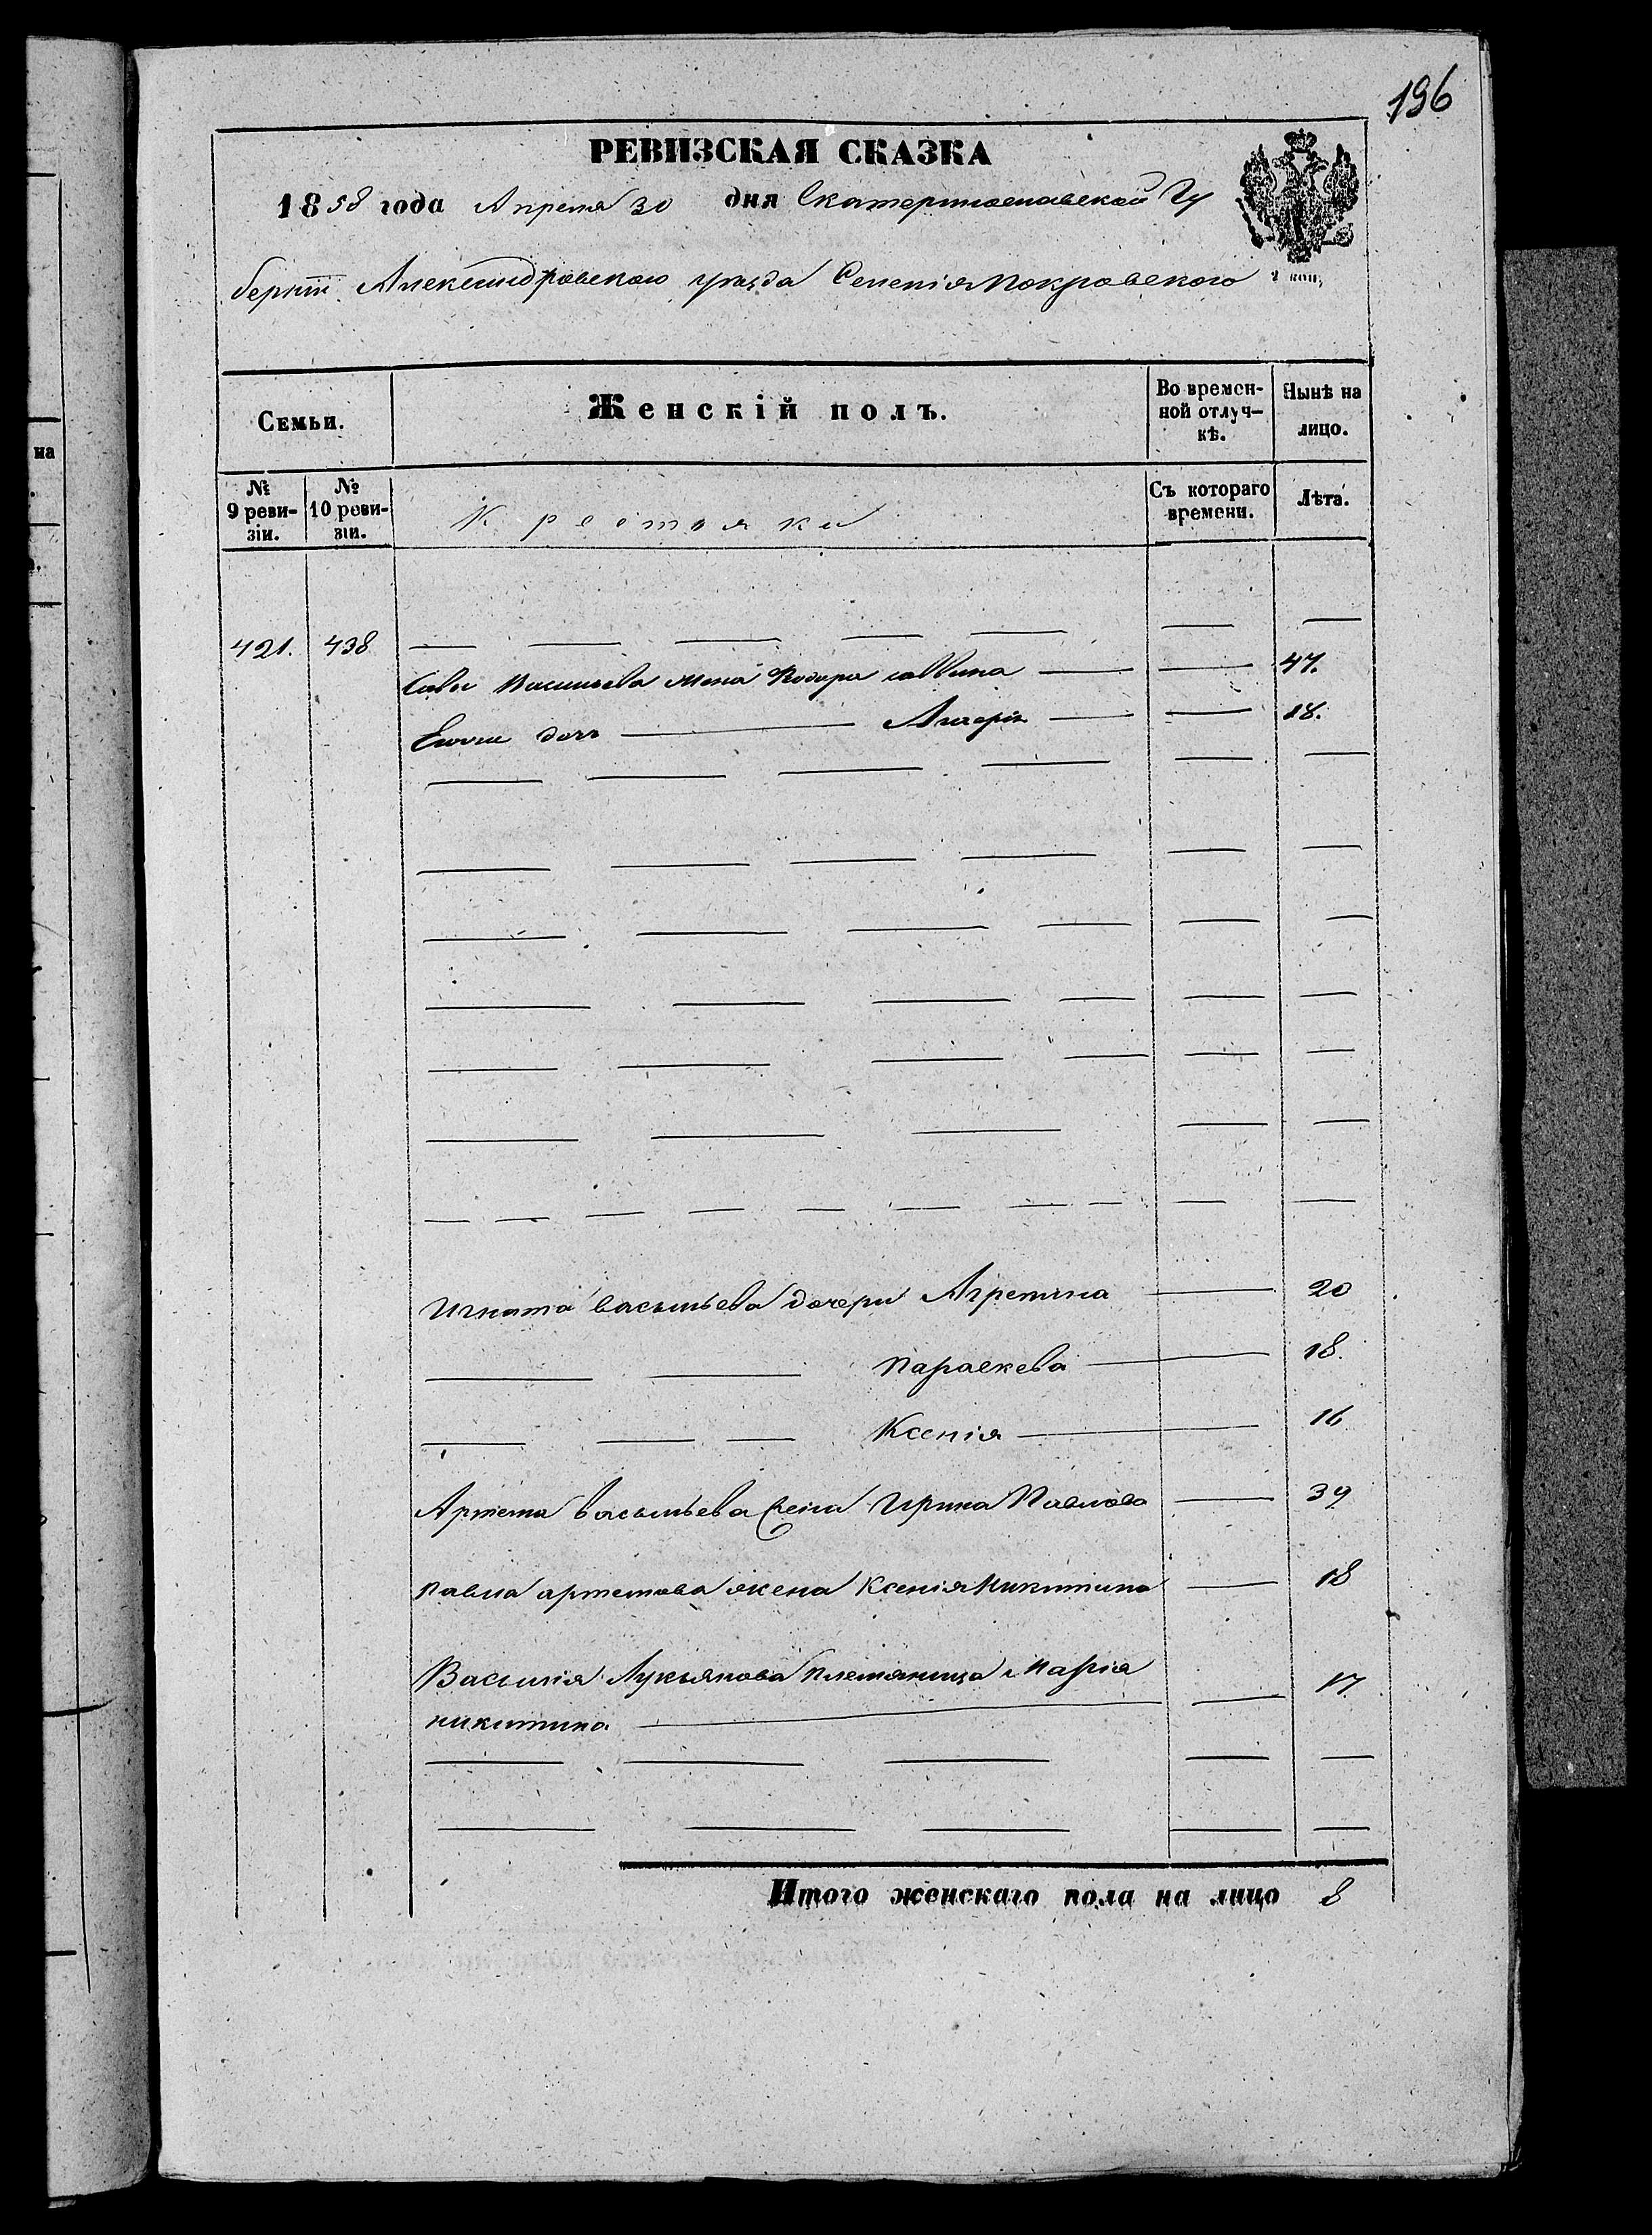 196
РЕВИЗСКАЯ СКАЗКА
1858 года Апреля 30 дня Екатеринославской Гу
берніи Александровскаго уезда Селенія Покровского
2 коп,
Семьи.
Женскій полъ.
Во времен-
ной отлуч-
кѣ.
Нынѣ на
лицо.
№
9 реви-
зіи.
№
10 реви-
зіи.
Крестьянки
Съ котораго
времени.
Лѣта.
на
421. 438
Савы Васильева жена Саввина 47.
Его дочь 18.
Игната васильева дочери Агрепина 20
Параскева 18.
Ксенія 16
Артема васильева жена Ирина Павлова 39
Павла артемова жена Ксенія Никитина 18
Василія Лукьянова племяница Марія 17.
никитина
Итого женскаго пола на лицо 8